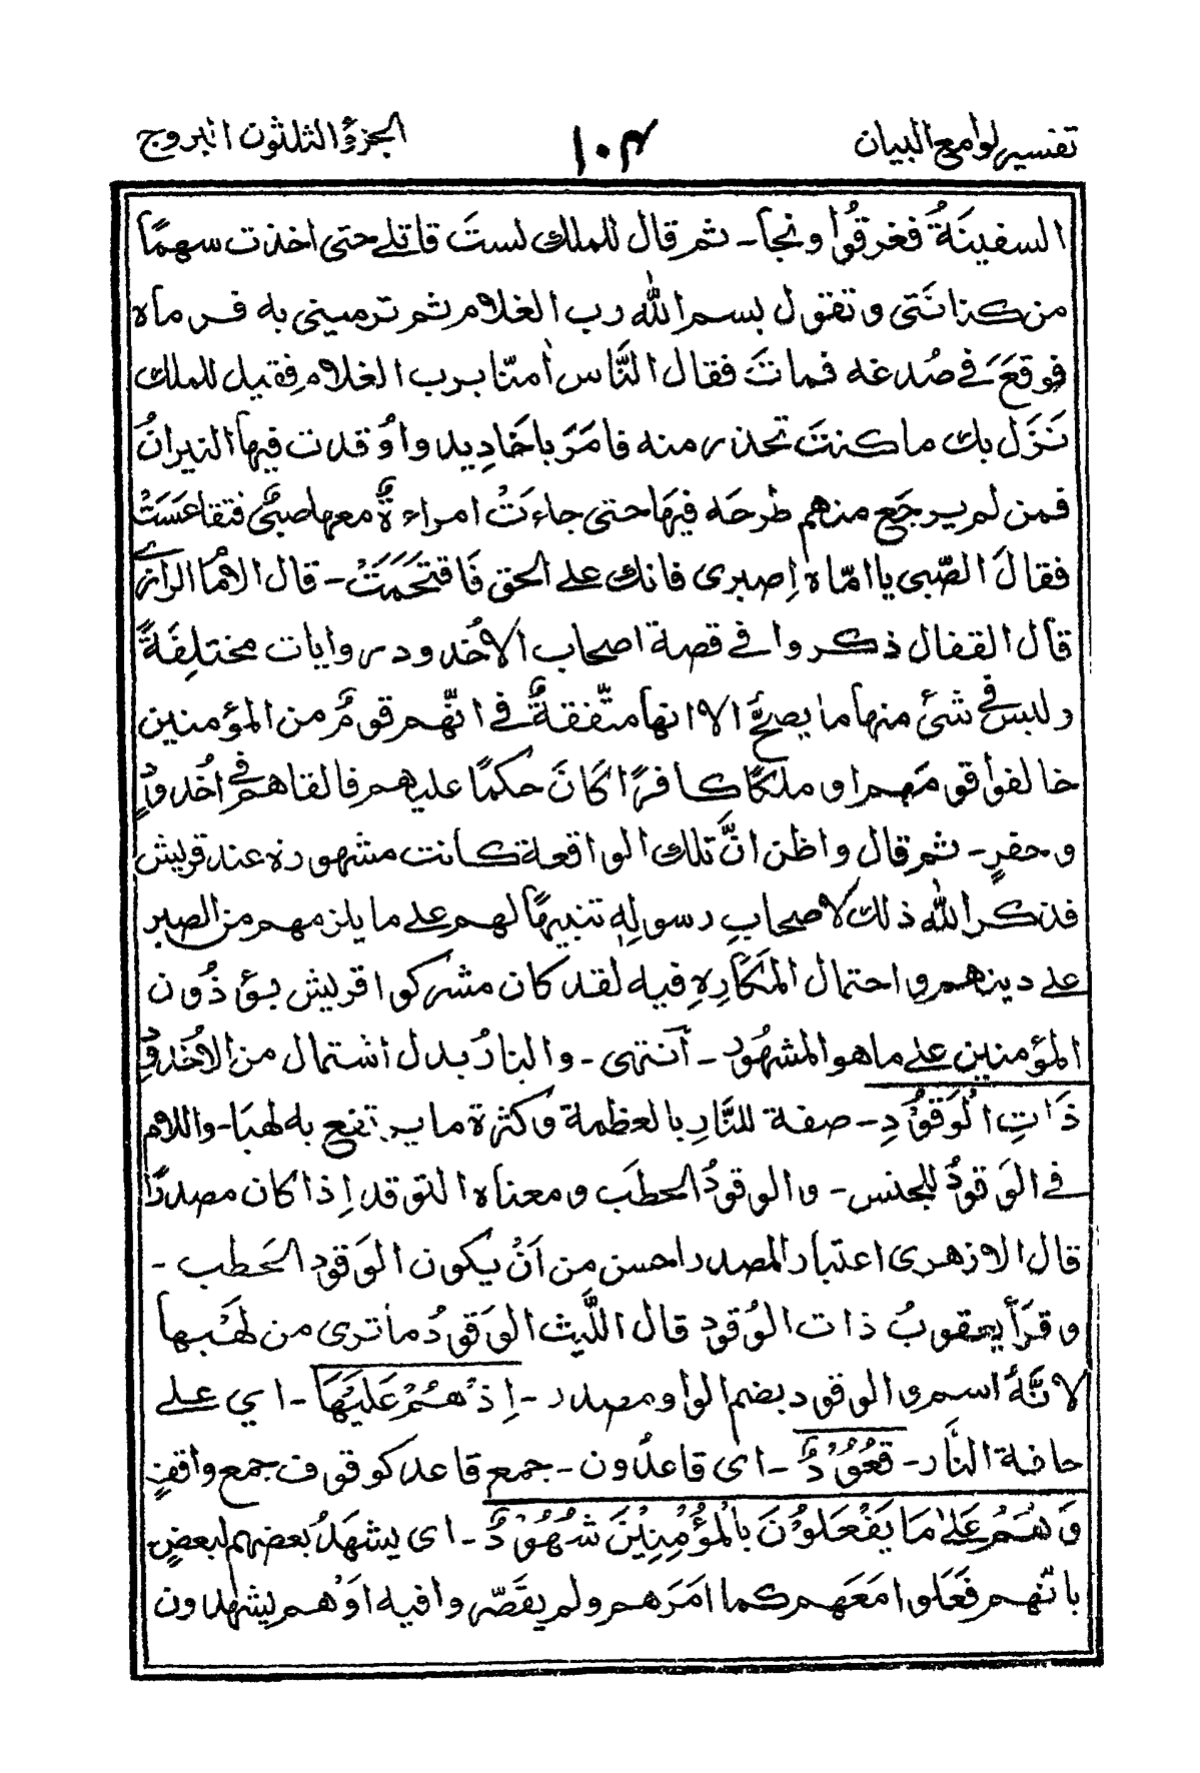 تفسیر لوامع البیان ١٠٤ الجزءُ الثلثون البروج
السفینَةُ فغرقُوا ونجا۔ ثم قال للملك لستَ قاتلے حتی اخذت سهمًا
من کنانَتی وتقول بسم اللّٰه رب الغلام ثم ترمینی به فرماه
فوقعَ فے صُدغه فماتَ فقال النَّاس اٰمنّا برب الغلام فقیل للملك
نَزَل بك ما کنتَ تحذر منه فامَرَ باخَادِید واوُقدت فیها النیرانُ
فمن لم یرجَع منهم طرحَه فیهَا حتی جاءتْ امراءةٌ معها صبیٌّ فتقاعَسَتْ
فقالَ الصّبی یا امّاه اِصبری فانك علے الحق فَاقتحَمَتْ۔ قال الامامُ الرازیے
قال القفال ذکروا فے قصة اصحاب الاخُدود روایات مختلِفَةً
ولیس فے شئ منها ما یصحُّ الا انها متّفقةٌ فے انّهم قومٌ من المؤمنین
خالفوا قومَهم او ملکًا کافرًا کَانَ حکمًا علیهم فالقاهم فے اخُدودٍ
وحفرٍ۔ ثم قال واظن انَّ تلك الواقعة کانت مشهورة عند قریش
فذکر اللّٰه ذلك لاصحابِ رسولِهٖ تنبیهًا لهم علے ما یلزمهم من الصبر
علے دینهم واحتمال المَکَارِهِ فیه لقد کان مشرکوا قریش یؤذُون
المؤمنین علے ما هو المشهُور۔ اَنتهی۔ والنارُ بدل اشتمال من الاخُدودِ
ذَاتِ الْوَقُوْدِ۔ صفة للنَّارِ بالعظمة وکثرة ما یرتفع به لهبَا۔ واللام
فے الوَقودُ للجنس۔ والوقودُ الحطَب ومعناه التوقد اِذا کان مصدرًا
قال الازهری اعتبار المصدر احسن من اَنْ یکون الوَقود الحَطب۔
وقرَأ یعقوبُ ذات الوُقود قال اللَّیث الوَقودُ ما ترى من لهَبها
لانَّهُ اسم والوقود بضم الواو مصدر۔ اِذْ هُمْ عَلَیْهَا۔ ای علے
حافة النَّار۔ قُعُوْدٌ۔ ای قاعدُون۔ جمع قاعد کوقوف جمع واقفٍ
وَهُمْ عَلیٰ مَا یَفْعَلُوْنَ بِالْمُؤْمِنِیْنَ شُهُوْدٌ۔ ای یشهَدُ بعضهم لبعضٍ
بانّهم فَعَلوا مَعَهم کما امَرَهم ولم یقَصّروا فیه اوْهم یشهدون